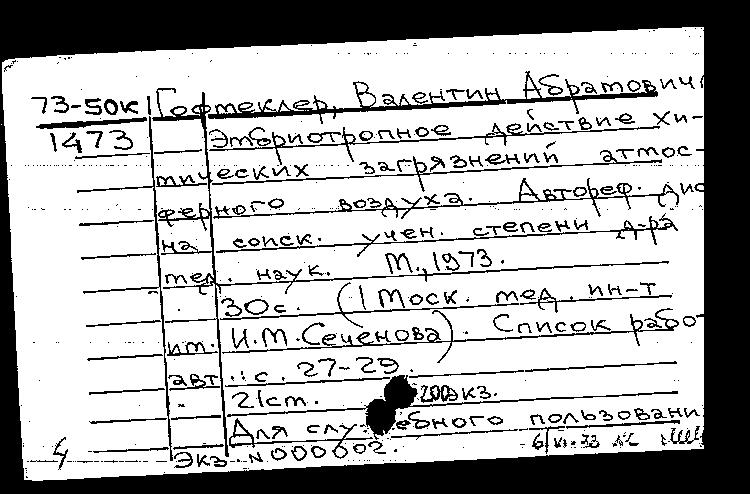 73-50к Гофмеклер, Валентин Абрамович
1473 Эмбриотропное действие хи-
мических загрязнений атмос-
ферного воздуха. Автореф. дис
на соиск. учен. степени д-ра
мед. наук. М., 1973.
30с. (1 Моск. мед. ин-т
им. И.М.Сеченова). Список рабо
авт.: с. 27-29.
21см. 200экз.
Для служебного пользовани
Экз. N000002.
4